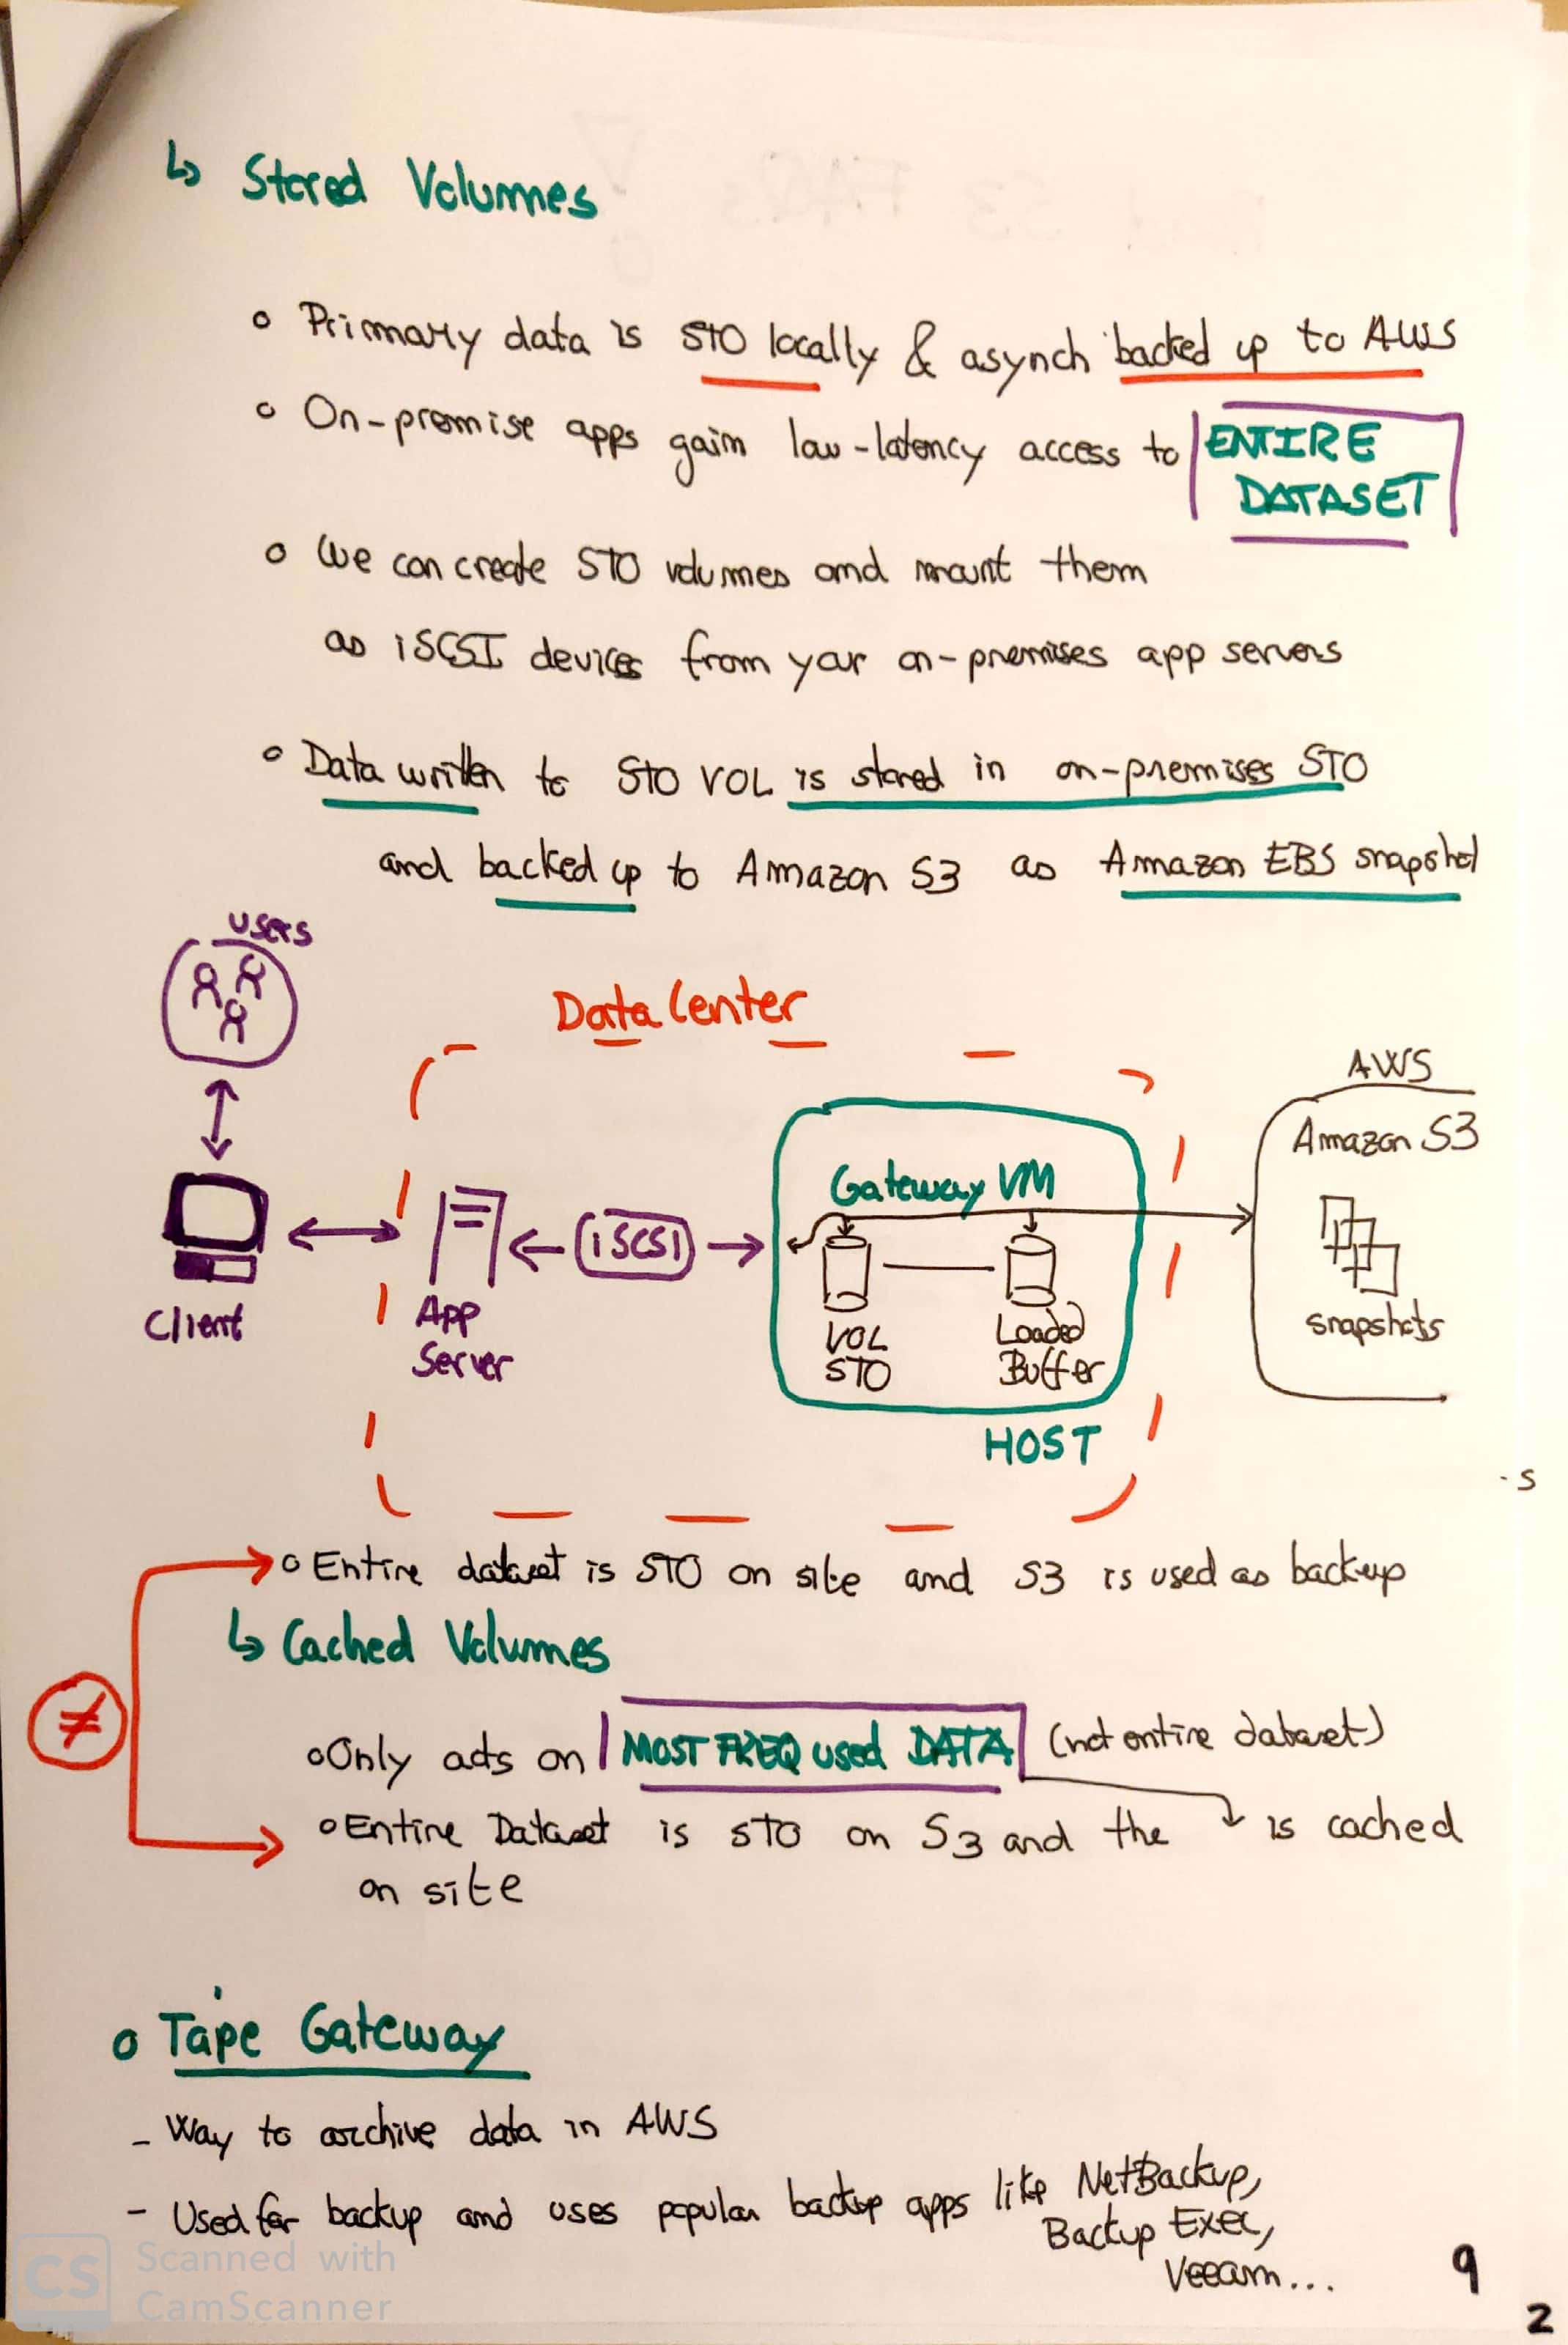 ↳ Stored Volumes
o Primary data is STO locally & asynch backed up to AWS
o On-premise apps gain low-latency access to ENTIRE
DATASET
o We can create STO volumes and mount them
as iSCSI devices from your on-premises app servers
o Data written to STO VOL is stored in on-premises STO
and backed up to Amazon S3 as Amazon EBS snapshot
Users
Data Center
AWS
Amazon S3
Gateway VM
iSCSI
Client
App
Server
VOL
STO
Loaded
Buffer
snapshots
HOST
-s
o Entire dataset is STO on site and S3 is used as backup
↳ Cached Volumes
≠
o Only acts on MOST FREQ used DATA (not entire dataset)
o Entire Dataset is STO on S3 and the ↓ is cached
on site
o Tape Gateway
- Way to archive data in AWS
- Used for backup and uses popular backup apps like NetBackup,
Backup Exec,
Veeam...
9
2
CS Scanned with
CamScanner